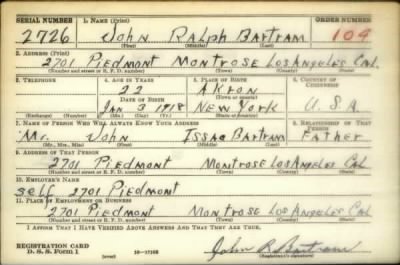 SERIAL NUMBER 1. NAME (Print) ORDER NUMBER
2726 John Ralph Bartram 109
(First) (Middle) (Last)
2. ADDRESS (Print)
2701 Piedmont Montrose Los Angeles Cal.
(Number and street or R. F. D. number) (Town) (County) (State)
3. TELEPHONE 4. AGE IN YEARS 5. PLACE OF BIRTH 6. COUNTRY OF CITIZENSHIP
22 Akron
DATE OF BIRTH (Town or county)
Jan 3 1918 New York U.S.A
(Exchange) (Number) (Mo.) (Day) (Yr.) (State or country)
7. NAME OF PERSON WHO WILL ALWAYS KNOW YOUR ADDRESS 8. RELATIONSHIP OF THAT PERSON
Mr. John Issac Bartram Father
(Mr., Mrs., Miss) (First) (Middle) (Last)
9. ADDRESS OF THAT PERSON
2701 Piedmont Montrose Los Angeles Cal
(Number and street or R. F. D. number) (Town) (County) (State)
10. EMPLOYER'S NAME
self 2701 Piedmont
11. PLACE OF EMPLOYMENT OR BUSINESS
2701 Piedmont Montrose Los Angeles Cal
(Number and street or R. F. D. number) (Town) (County) (State)
I AFFIRM THAT I HAVE VERIFIED ABOVE ANSWERS AND THAT THEY ARE TRUE.
REGISTRATION CARD
D. S. S. Form 1 (over) John R Bartram
(Registrant's signature)